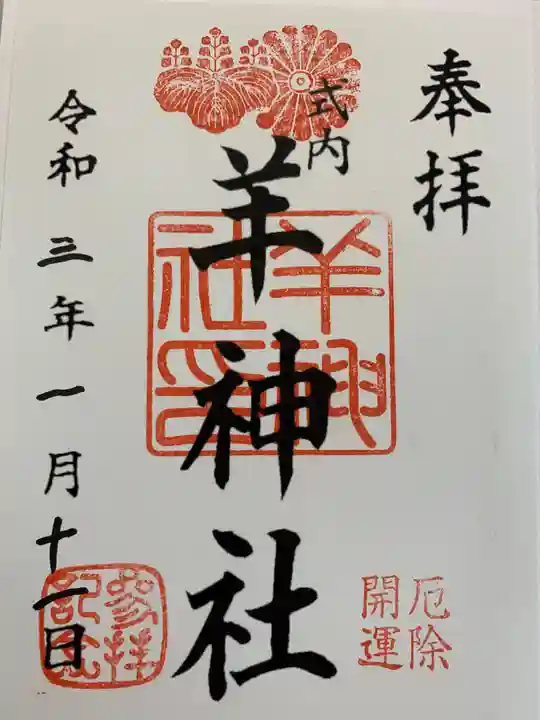 奉拝
式内
羊神社
羊神
社印
厄除
開運
令和三年一月十一日
参拝
記念